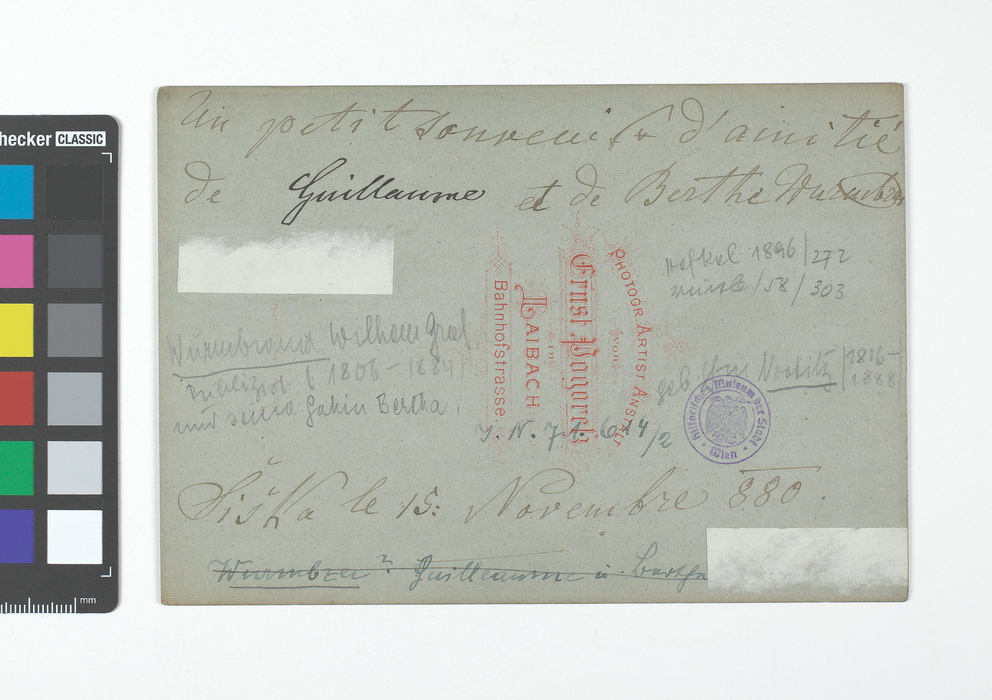 Un petit souvenir d'amitié
de Guillaume et de Berthe Wurmbrand
1896/272
/58/303
PHOTOGR. ARTIST ANSTALT
von
Ernst Pogorelz
in
LAIBACH
Bahnhofstrasse.
Wurmbrand Wilhelm Graf
Publizist 1806-1884/
und seine Gattin Bertha,
geb. /1816-
1888
I. N. 71.614/2
Historisches Museum der Stadt Wien
Šiška le 15: Novembre 880.
Wurmbran? Guilleaume u. Bertha
checker CLASSIC
mm